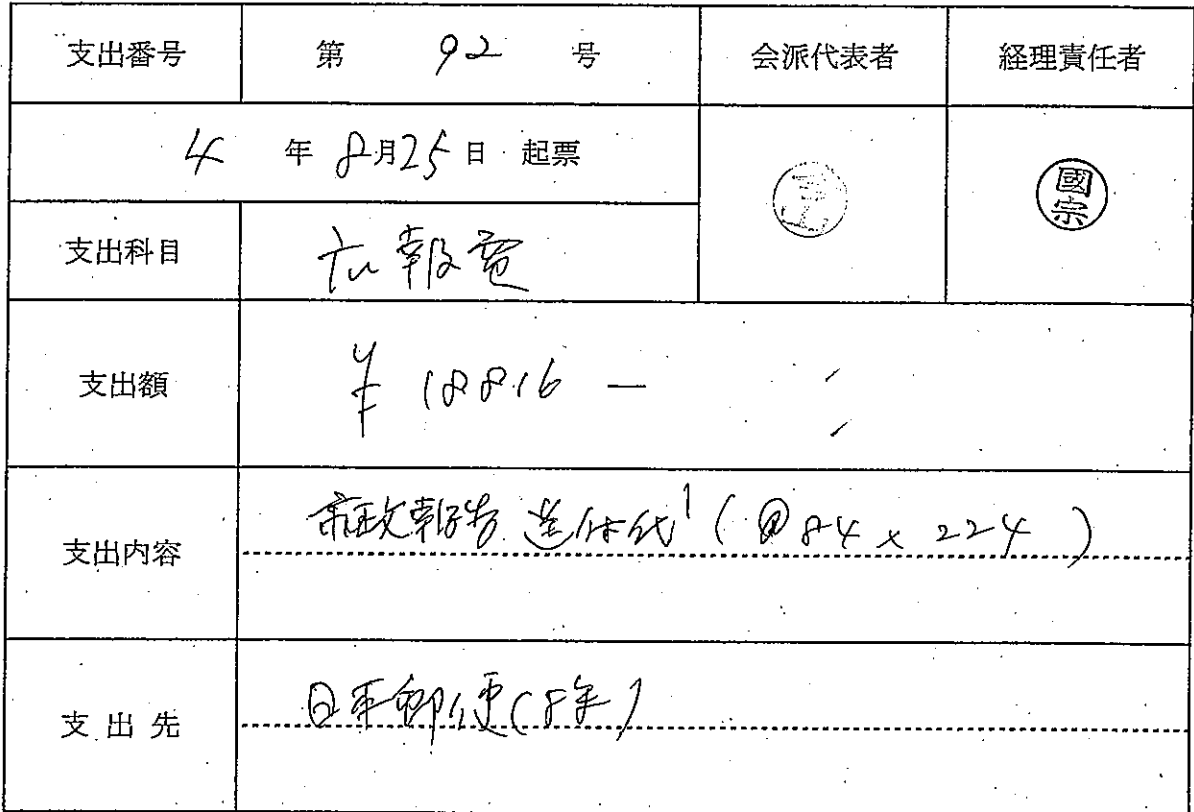 支出番号 第 92 号 会派代表者 経理責任者
4 年 8月25日 起票
國宗
支出科目 広報費
支出額 ¥18816 ー
支出内容 市政報告送付代 (@84 x 224)
支出先 日本郵便